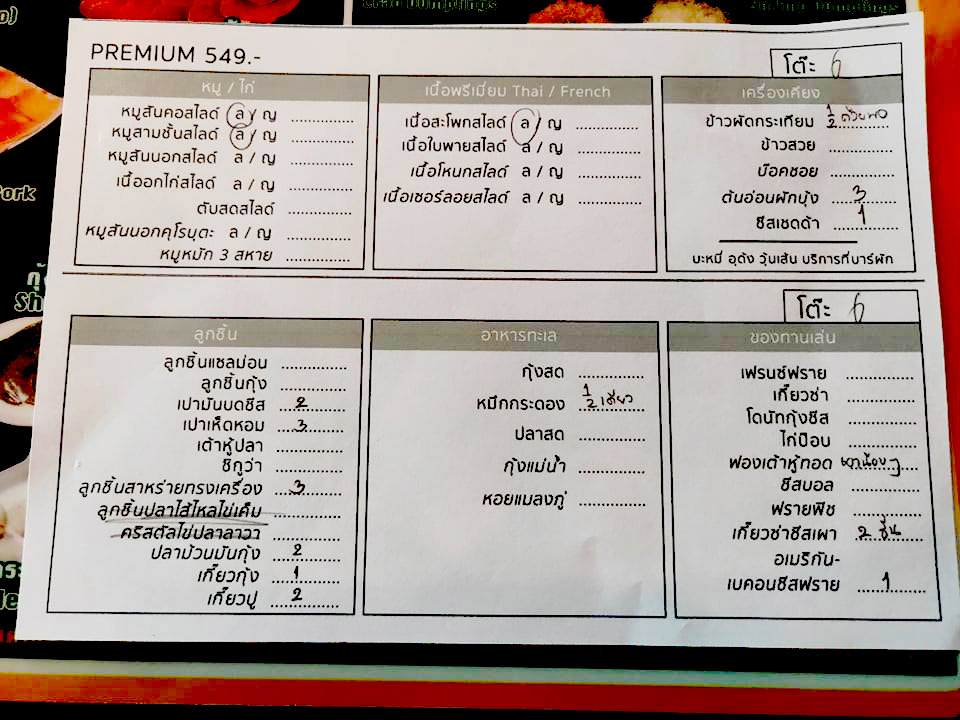 PREMIUM 549.-
โต๊ะ 6
หมู / ไก่
หมูสันคอสไลด์ ล / ญ
หมูสามชั้นสไลด์ ล / ญ
หมูสันนอกสไลด์ ล / ญ
เนื้ออกไก่สไลด์ ล / ญ
ตับสดสไลด์
หมูสันนอกคุโรบุตะ ล / ญ
หมูหมัก 3 สหาย
เนื้อพรีเมี่ยม Thai / French
เนื้อสะโพกสไลด์ ล / ญ
เนื้อใบพายสไลด์ ล / ญ
เนื้อโหนกสไลด์ ล / ญ
เนื้อเซอร์ลอยสไลด์ ล / ญ
เครื่องเคียง
ข้าวผัดกระเทียม 1/2 ถ้วยพอ
ข้าวสวย
บ๊อคชอย
ต้นอ่อนผักบุ้ง 3
ชีสเชดด้า 1
บะหมี่ อุด้ง วุ้นเส้น บริการที่บาร์ผัก
โต๊ะ 6
ลูกชิ้น
ลูกชิ้นแซลม่อน
ลูกชิ้นกุ้ง
เปามันบดชีส 2
เปาเห็ดหอม 3
เต้าหู้ปลา
ชิกูว่า
ลูกชิ้นสาหร่ายทรงเครื่อง 3
ลูกชิ้นปลาไส้ไหลไข่เค็ม
คริสตัลไข่ปลาลาวา
ปลาม้วนมันกุ้ง 2
เกี๊ยวกุ้ง 1
เกี๊ยวปู 2
อาหารทะเล
กุ้งสด
หมึกกระดอง 1/2 เดียว
ปลาสด
กุ้งแม่น้ำ
หอยแมลงภู่
ของทานเล่น
เฟรนช์ฟราย
เกี๊ยวซ่า
โดนัทกุ้งชีส
ไก่ป๊อบ
ฟองเต้าหู้ทอด
ชีสบอล
ฟรายฟิช
เกี๊ยวซ่าชีสเผา 2 ชิ้น
อเมริกัน-
เบคอนชีสฟราย 1